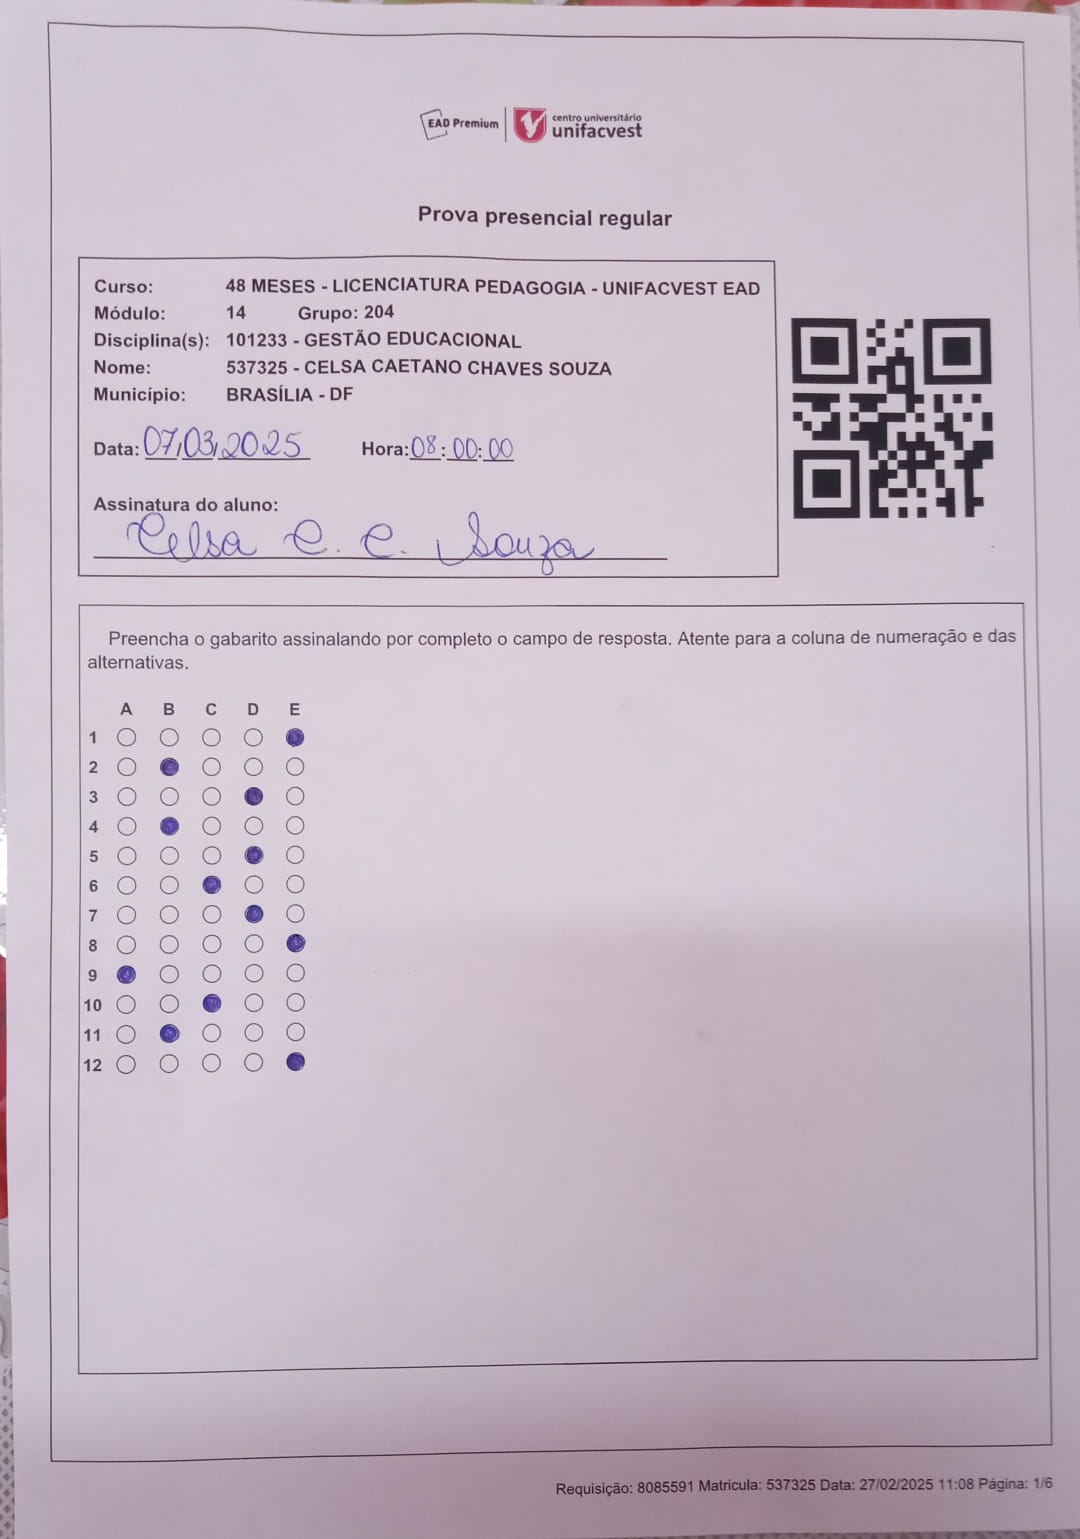 EAD Premium
centro universitário
unifacvest
Prova presencial regular
Curso: 48 MESES - LICENCIATURA PEDAGOGIA - UNIFACVEST EAD
Módulo: 14 Grupo: 204
Disciplina(s): 101233 - GESTÃO EDUCACIONAL
Nome: 537325 - CELSA CAETANO CHAVES SOUZA
Município: BRASÍLIA - DF
Data: 07/03/2025 Hora: 08:00:00
Assinatura do aluno:
Celsa C. C. Souza
Preencha o gabarito assinalando por completo o campo de resposta. Atente para a coluna de numeração e das
alternativas.
A B C D E
1
2
3
4
5
6
7
8
9
10
11
12
Requisição: 8085591 Matricula: 537325 Data: 27/02/2025 11:08 Página: 1/6